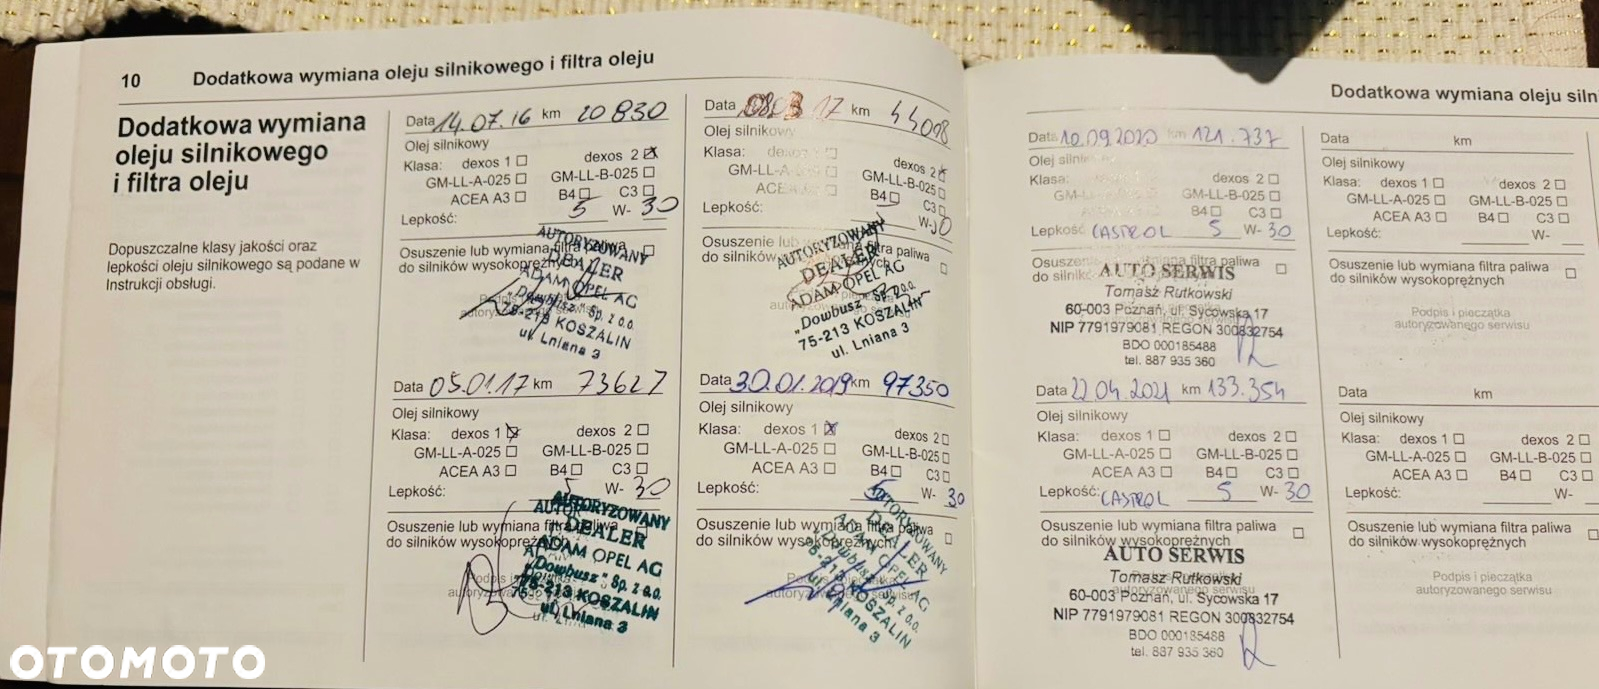 10 Dodatkowa wymiana oleju silnikowego i filtra oleju
Dodatkowa wymiana
oleju silnikowego
i filtra oleju
Dopuszczalne klasy jakości oraz
lepkości oleju silnikowego są podane w
Instrukcji obsługi.
Data 14.07.16 km 20830
Olej silnikowy
Klasa: dexos 1 dexos 2
GM-LL-A-025 GM-LL-B-025
ACEA A3 B4 C3
Lepkość: 5 W- 30
Osuszenie lub wymiana filtra paliwa
do silników wysokoprężnych
AUTORYZOWANY
DEALER
ADAM OPEL AG
"Dowbusz" Sp. z o.o.
75-213 KOSZALIN
ul. Lniana 3
Data 05.01.17 km 73627
Olej silnikowy
Klasa: dexos 1 dexos 2
GM-LL-A-025 GM-LL-B-025
ACEA A3 B4 C3
Lepkość: 5 W- 30
Osuszenie lub wymiana filtra paliwa
do silników wysokoprężnych
AUTORYZOWANY
DEALER
ADAM OPEL AG
"Dowbusz" Sp. z o.o.
75-213 KOSZALIN
ul. Lniana 3
Data 17 km
Olej silnikowy
Klasa: dexos 2
GM-LL-A- GM-LL-B-025
ACEA B4 C3
Lepkość: 5 W- 30
Osuszenie lub filtra paliwa
do silników
AUTORYZOWANY
DEALER
ADAM OPEL AG
"Dowbusz" Sp. z o.o.
75-213 KOSZALIN
ul. Lniana 3
Data 30.01.2019 km 97350
Olej silnikowy
Klasa: dexos 1 dexos 2
GM-LL-A-025 GM-LL-B-025
ACEA A3 B4 C3
Lepkość: 5 W- 30
Osuszenie lub wymiana filtra paliwa
do silników wysokoprężnych
AUTORYZOWANY
DEALER
ADAM OPEL AG
"Dowbusz" Sp. z o.o.
75-213 KOSZALIN
ul. Lniana 3
Dodatkowa wymiana oleju siln
Data 10.09.2020 km 121.737
Olej
Klasa: dexos 2
GM- GM-LL-B-025
B4 C3
Lepkość CASTROL 5 W- 30
Osuszenie filtra paliwa
do silników wysokoprężnych
AUTO SERWIS
Tomasz Rutkowski
60-003 Poznań, ul. Sycowska 17
NIP 7791979081 REGON 300832754
BDO 000185488
tel. 887 935 360
Data 22.04.2021 km 133.354
Olej silnikowy
Klasa: dexos 1 dexos 2
GM-LL-A-025 GM-LL-B-025
ACEA A3 B4 C3
Lepkość: CASTROL 5 W- 30
Osuszenie lub wymiana filtra paliwa
do silników wysokoprężnych
AUTO SERWIS
Tomasz Rutkowski
60-003 Poznań, ul. Sycowska 17
NIP 7791979081 REGON 300832754
BDO 000185488
tel. 887 935 360
Data km
Olej silnikowy
Klasa: dexos 1 dexos 2
GM-LL-A-025 GM-LL-B-025
ACEA A3 B4 C3
Lepkość: W-
Osuszenie lub wymiana filtra paliwa
do silników wysokoprężnych
Podpis i pieczątka
autoryzowanego serwisu
Data km
Olej silnikowy
Klasa: dexos 1 dexos 2
GM-LL-A-025 GM-LL-B-025
ACEA A3 B4 C3
Lepkość: W-
Osuszenie lub wymiana filtra paliwa
do silników wysokoprężnych
Podpis i pieczątka
autoryzowanego serwisu
OTOMOTO